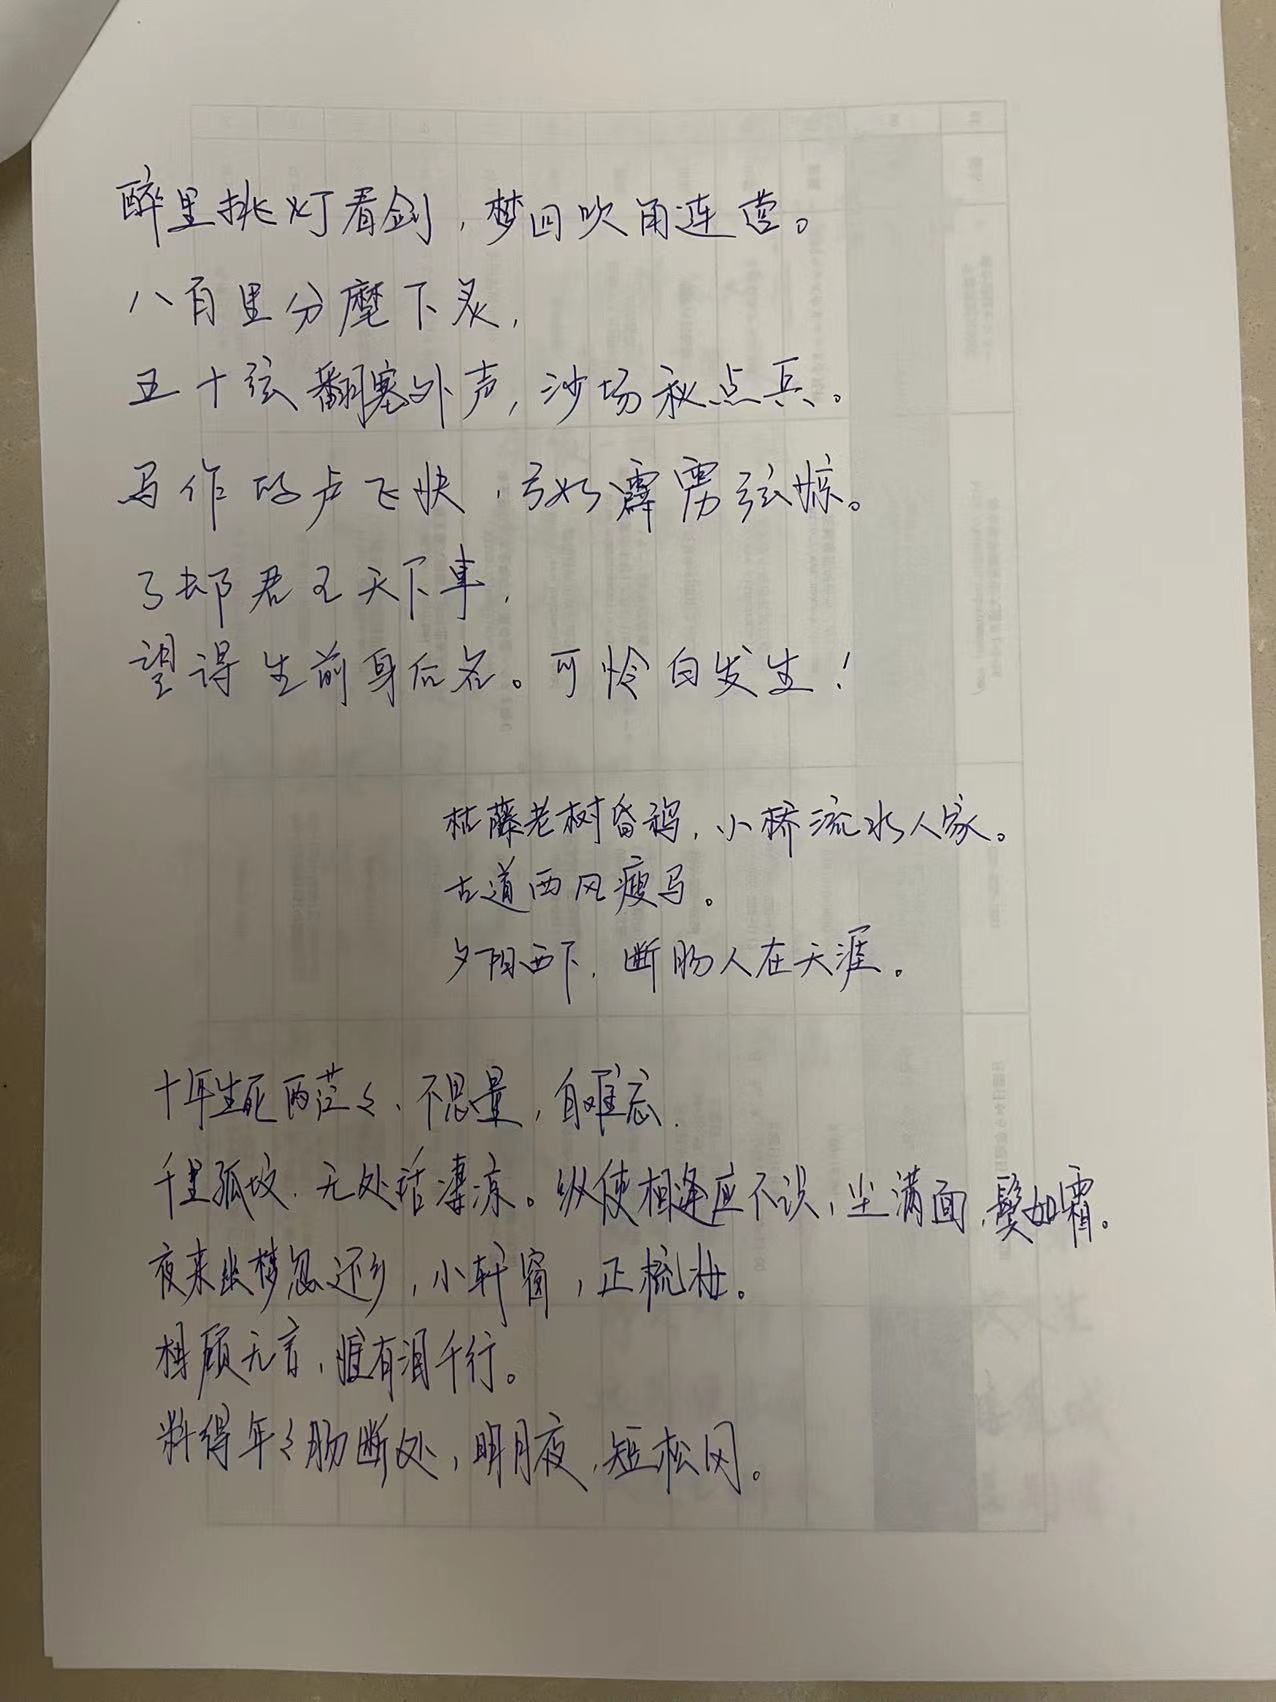 醉里挑灯看剑，梦回吹角连营。
八百里分麾下炙，
五十弦翻塞外声，沙场秋点兵。
马作的卢飞快，弓如霹雳弦惊。
了却君王天下事，
望得生前身后名。可怜白发生！
枯藤老树昏鸦，小桥流水人家。
古道西风瘦马。
夕阳西下，断肠人在天涯。
十年生死两茫々、不思量，自难忘.
千里孤坟、无处话凄凉。纵使相逢应不识，尘满面、鬓如霜。
夜来幽梦忽还乡，小轩窗，正梳妆。
相顾无言，惟有泪千行。
料得年々肠断处，明月夜、短松冈。